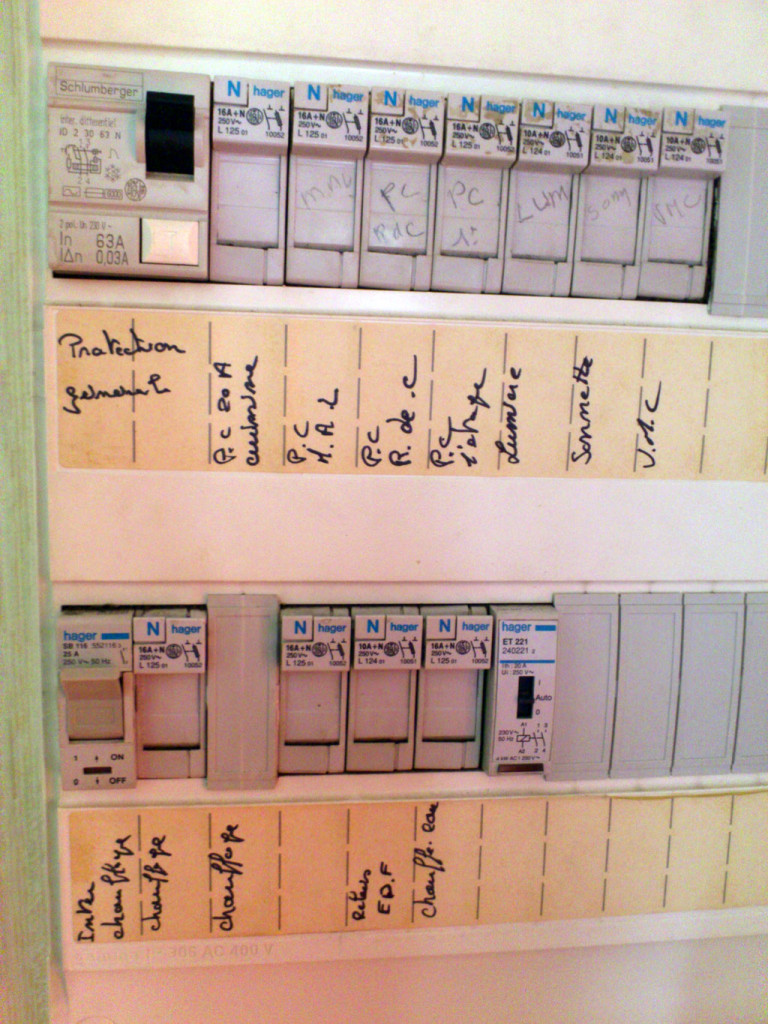 Schlumberger
inter. différentiel
ID 2 30 63 N
2 pol. Un 230 V ~
In 63A
IΔn 0,03A
N hager
16A+N
250V~
L 125 01
10052
N hager
16A+N
250V~
L 125 01
10052
N hager
16A+N
250V~
L 125 01
10052
PC
RdC
N hager
16A+N
250V~
L 125 01
10052
PC
1°
N hager
10A+N
250V~
L 124 01
10051
LUM
N hager
10A+N
250V~
L 124 01
10051
Sonn
N hager
10A+N
250V~
L 124 01
VMC
Protection
general
P.C 20 A
cuisine
P.C
M.A.L
P.C
R.de.C
P.C
Lumiere
Sonnette
V.M.C
hager
SB 116
25 A
250 V~ 50 Hz
1 ON
0 OFF
N hager
16A+N
250V~
L 125 01
10052
N hager
16A+N
250V~
L 125 01
10052
N hager
10A+N
250V~
L 124 01
10051
N hager
16A+N
250V~
L 125 01
10052
hager
ET 221
240221
I
Auto
0
A1 1 3
230V~
50 Hz
A2 2 4
Inter
chauffage
chauffage
chauffage
EDF
chauffe.eau
305 AC 400 V